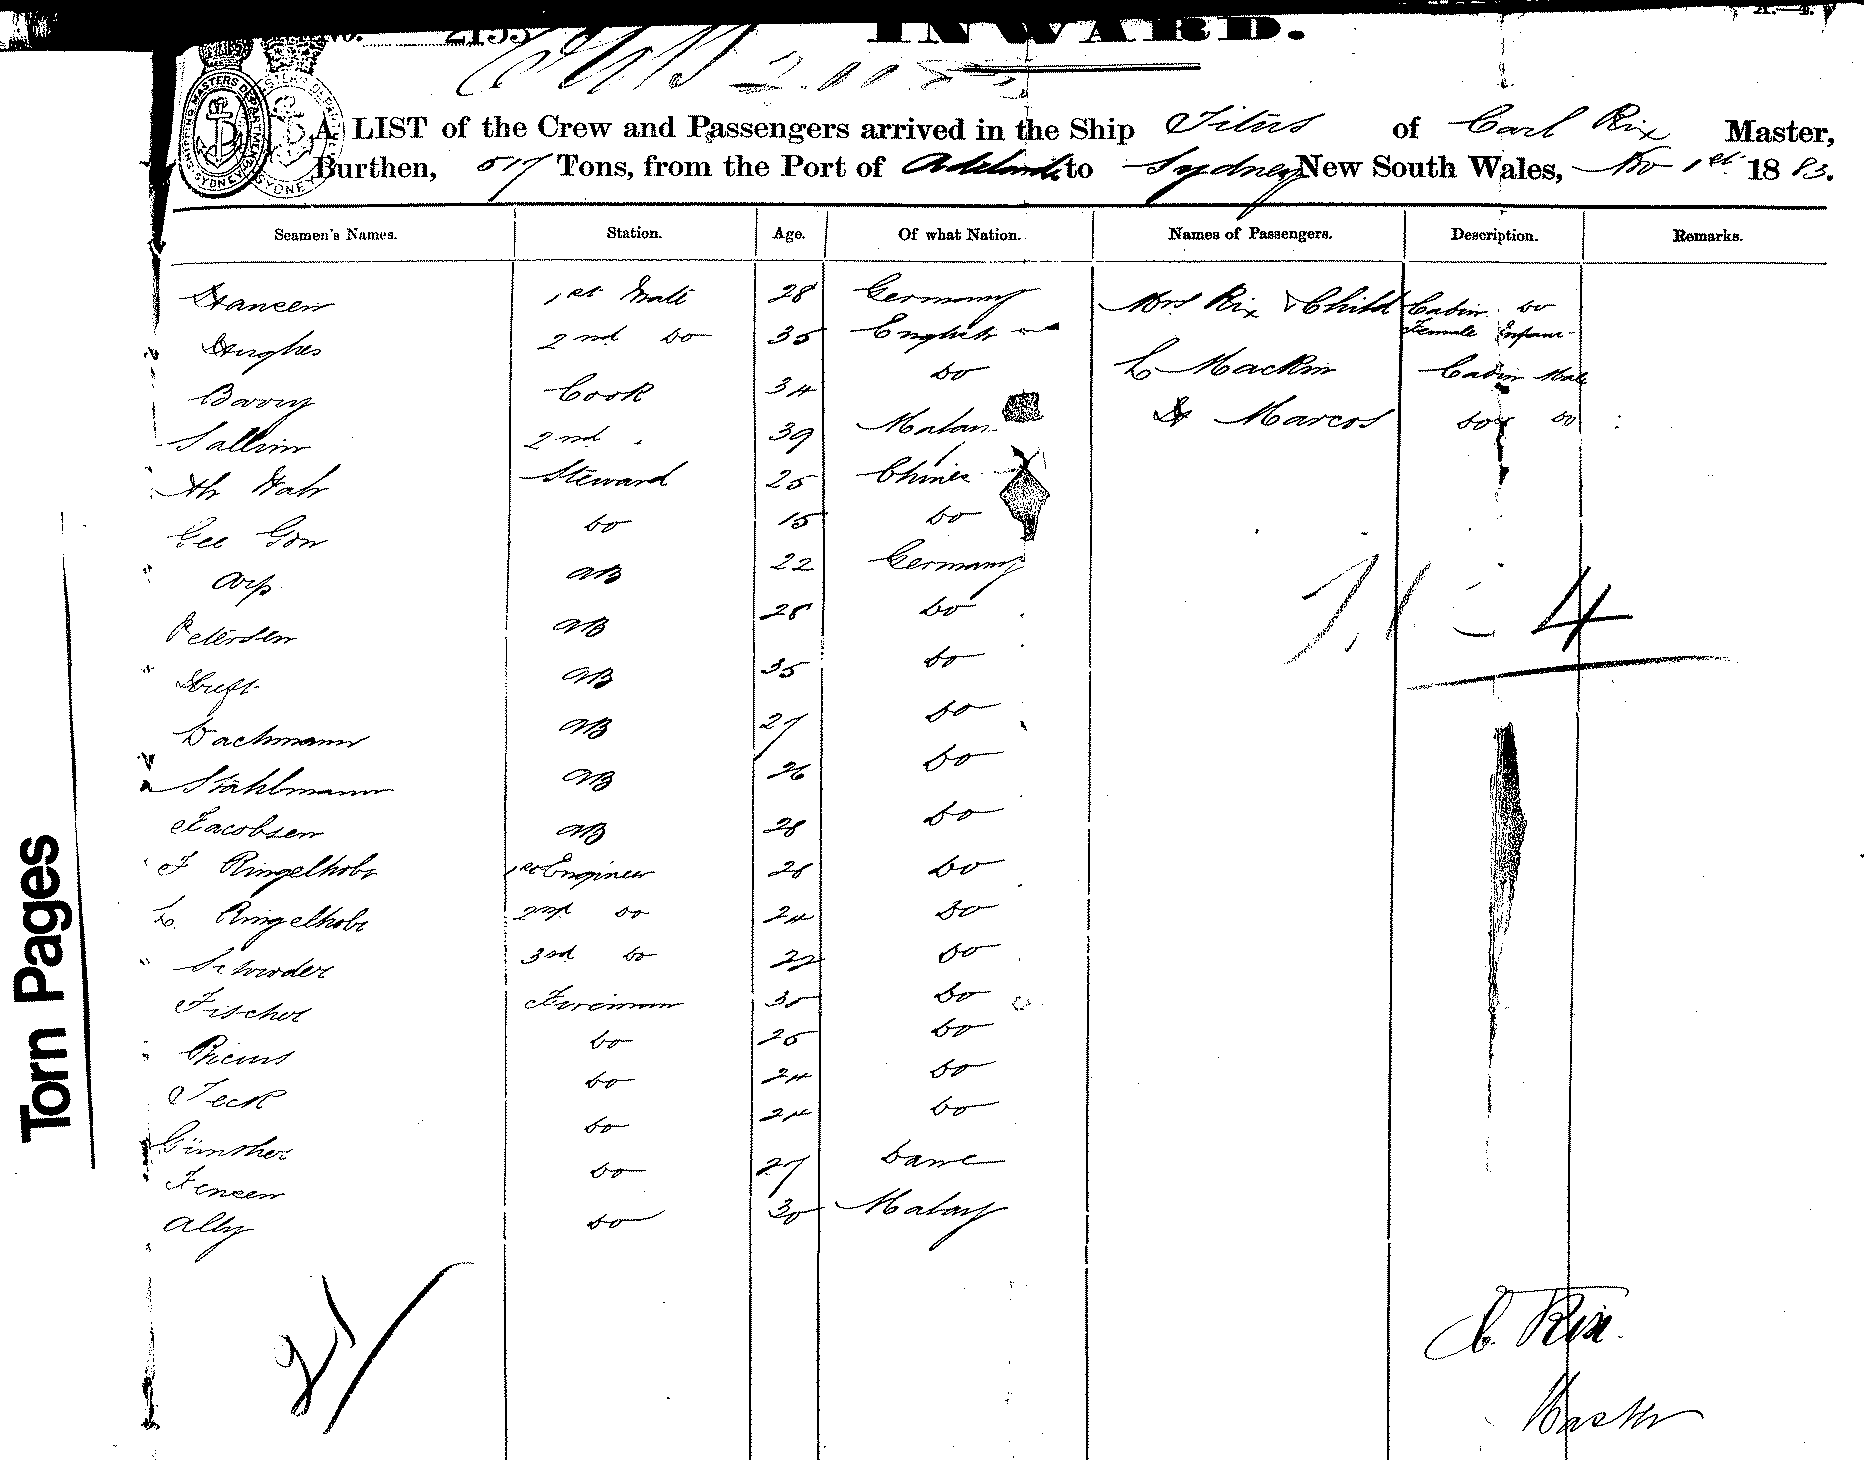 INWARD.
A LIST of the Crew and Passengers arrived in the Ship Titus of Carl Rix Master,
Burthen, 517 Tons, from the Port of Adelaide to Sydney New South Wales, Nov 1st 1883.
Seamen's Names. Station. Age. Of what Nation. Names of Passengers. Description. Remarks.
Hansen 1st Mate 28 Germany Mrs Rix & Child Cabin do
Female Infant
Hughes 2nd Do 35 English
Barry Cook 34 Do L Mackin Cabin Male
Sallim 2nd 39 Malay Marcos Do Do
Ah Wah Steward 25 Chines
Gee Gon Do 15 Do
Arp AB 22 Germany
Petersen AB 28 Do
AB 35 Do
Wachmann AB 27 Do
Stahlmann AB 26 Do
Jacobsen AB 28 Do
F Ringelhobr 1st Engineer 28 Do
L Ringelhobr 2nd Do 24 Do
Schroder 3rd Do 22 Do
Fischer Fireman 30 Do
Do 25 Do
Jeck Do 24 Do
Günther Do 24 Do
Jensen Do 27 Dane
Ally Do 30 Malay
4
21
C. Rix
Master
Torn Pages